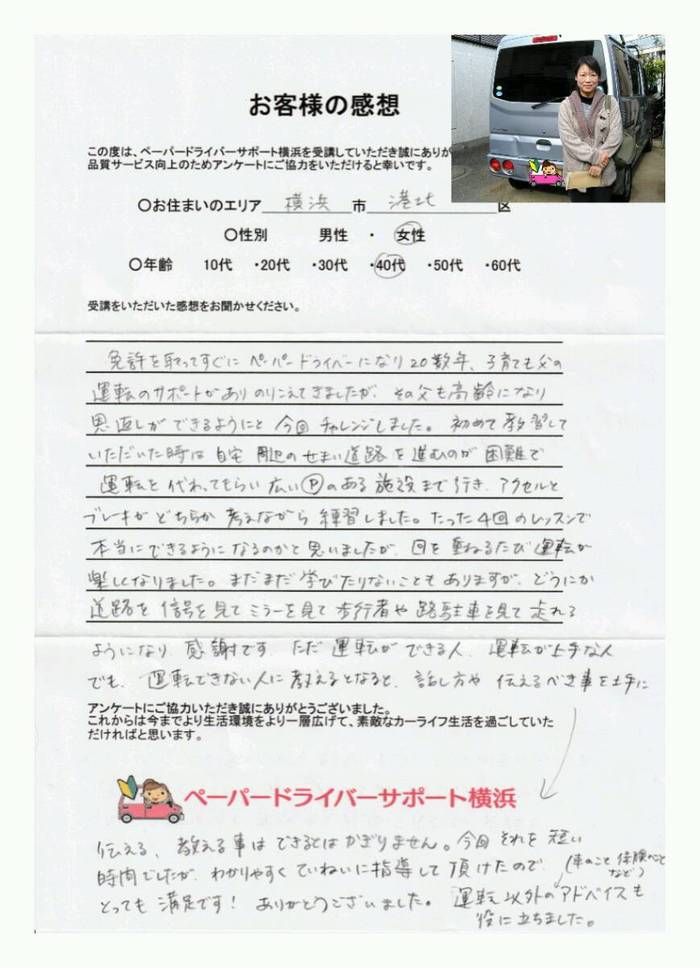 お客様の感想
この度は、ペーパードライバーサポート横浜を受講していただき誠にありが
品質サービス向上のためアンケートにご協力をいただけると幸いです。
〇お住まいのエリア 横浜 市 港北 区
〇性別 男性 ・ 女性
〇年齢 10代 ・20代 ・30代 ・40代 ・50代 ・60代
受講をいただいた感想をお聞かせください。
免許を取ってすぐに ペーパードライバーになり20数年、子育ても父の
運転のサポートがあり のりこえてきましたが、その父も高齢になり
恩返しができるようにと 今回 チャレンジしました。初めて教習して
いただいた時は 自宅 周辺のせまい道路を進むのが困難で
運転を代わってもらい 広いⓅのある施設まで行き、アクセルと
ブレーキがどちらか 考えながら 練習しました。たった4回のレッスンで
本当にできるようになるのかと思いましたが、回を重ねるたび運転が
楽しくなりました。まだまだ学びたりないこともありますが、どうにか
道路を 信号を見て ミラーを見て 歩行者や路駐車を見て 走れる
ようになり、感謝です。ただ 運転ができる人、運転が上手な人
でも、運転できない人に教えるとなると、話し方や 伝えるべき事を上手に
アンケートにご協力いただき誠にありがとうございました。
これからは今までより生活環境をより一層広げて、素敵なカーライフ生活を過ごしていた
だければと思います。
ペーパードライバーサポート横浜
伝える、教える事は できるとはかぎりません。今回 それを 短い
時間でしたが、わかりやすく ていねいに指導して 頂けたので、
(車のこと 保険のこと
など)
とっても 満足です! ありがとうございました。運転以外のアドバイスも
役に立ちました。